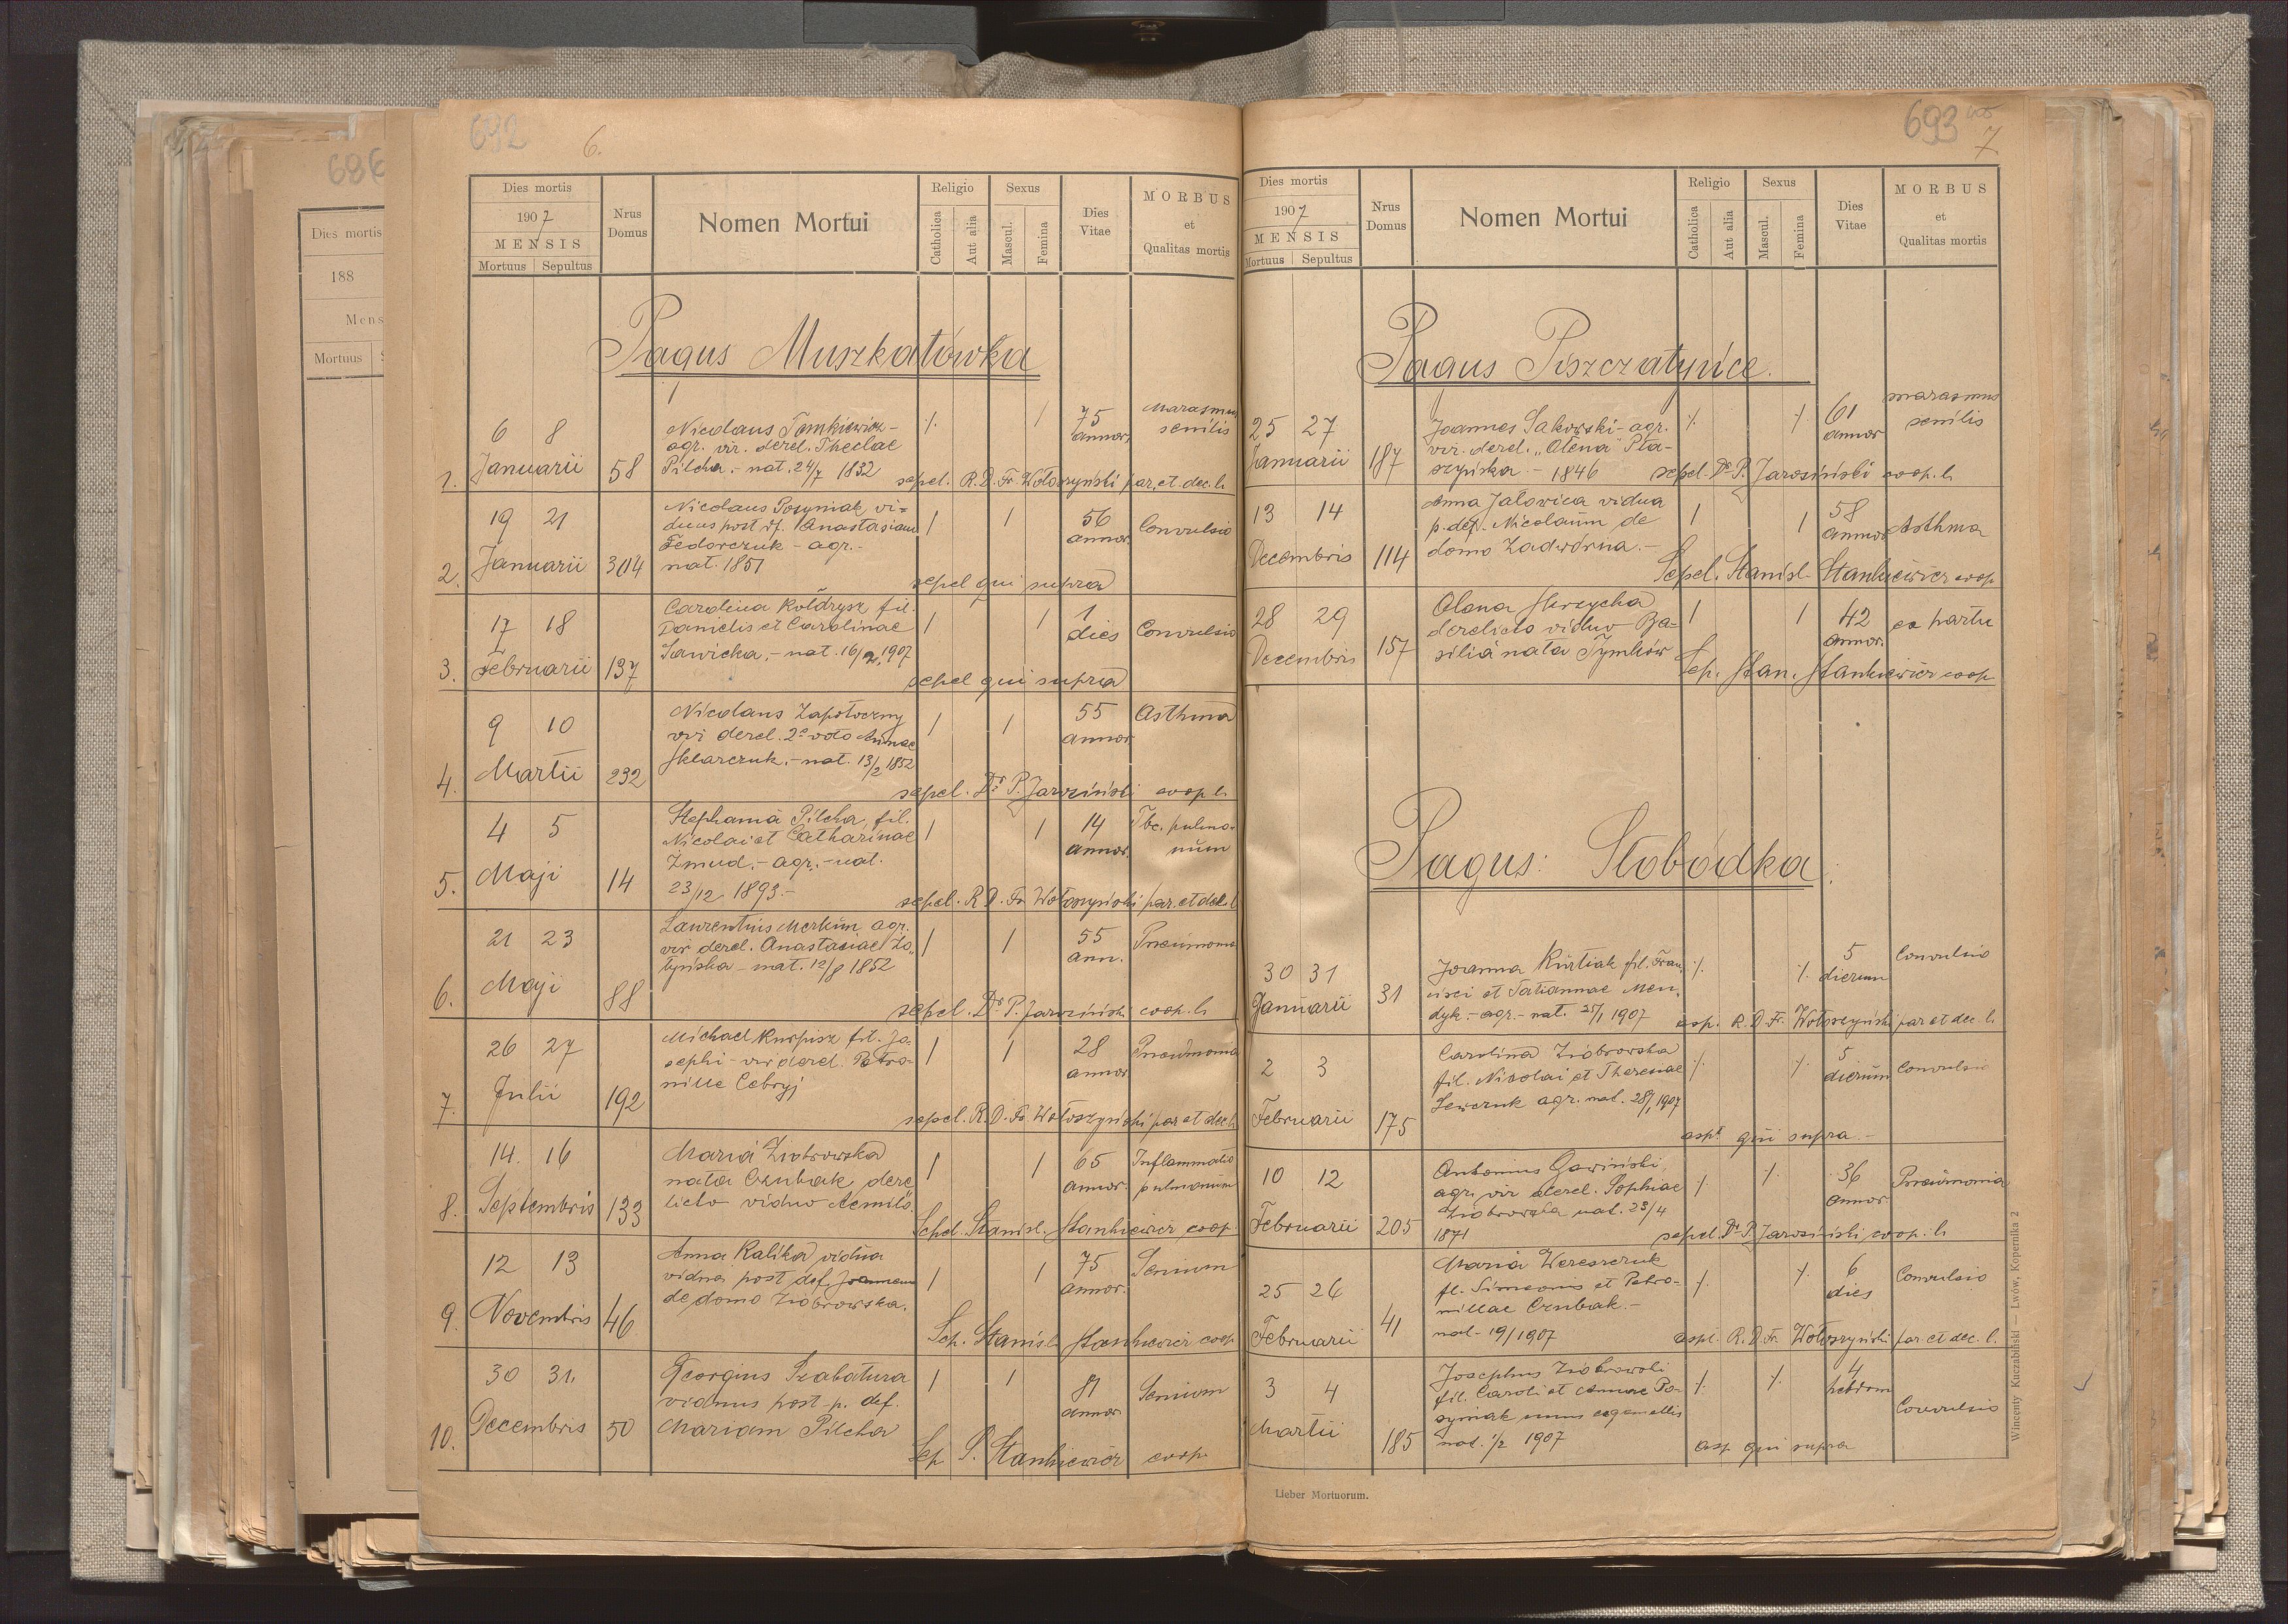 686
Dies mortis
188
Mens
Mortuus
692
6.
Dies mortis
1907
MENSIS
Mortuus Sepultus
Nrus Domus
Nomen Mortui
Religio
Catholica
Aut alia
Sexus
Mascul.
Femina
Dies Vitae
MORBUS
et
Qualitas mortis
Pagus Muszkatówka
1. 6 8 Januarii 58
Nicolaus Tomkiewicz -
agr. vir. derel. Theclae
Pilcha. - nat. 24/7 1832
75 annor.
Marasmus senilis
sepel. R. D. Fr. Wołoszyński par. et. dec. l.
2. 19 21 Januarii 304
Nicolaus Posyniak vi=
duus post df. Anastasiam
Fedorczuk - agr. -
nat. 1851
56 annor.
Convulsio
sepel qui supra
3. 17 18 Februarii 137
Carolina Kołdrysz fil.
Danielis et Carolinae
Sawicka, - nat. 16/2, 1907
1 dies
Convulsio
sepel qui supra
4. 9 10 Martii 232
Nicolaus Zapotoczny
vir derel. 2º voto Annae
Sklarczuk. - nat. 13/2 1852
55 annor
Asthma
sepel. Dr P. Jarosiński coop l.
5. 4 5 Maji 14
Stephania Pilcha, fil.
Nicolai et Catharinae
Żmud. - agr. - nat.
23/12 1893. -
14 annor.
Tbc. pulmo-
num
sepel. R. D. Fr Wołoszyński par. et dec. l
6. 21 23 Maji 88
Laurentius Merkun agr.
vir derel. Anastasiae Zo„
tyńska - nat. 12/8 1852
55 ann.
Pneumonia
sepel. Dr P. Jarosiński coop. l.
7. 26 27 Julii 192
Michael Kurpisz fil. Jo-
sephi - vir derel. Petro-
nille Cebryj
28 annor
Pneumonia
sepel. R. D. Fr Wołoszyński par et dec. l.
8. 14 16 Septembris 133
Maria Ziobrowska
nata Czubak dere
licto viduo Aemilo.
65 annor.
Inflammatio
pulmonum
Sepel. Stanisl. Stankiewicz coop.
9. 12 13 Novembris 46
Anna Kalika vidua
vidua post def. Joannem
de domo Ziobrowska.
75 annor.
Senium
Sep. Stanisl. Stankiewicz coop
10. 30 31. Decembris 50
Georgius Szabatura
viduus post p. def.
Mariam Pilcha
81 annor
Senium
Sep S. Stankiewicz coop.
693
7.
Dies mortis
1907
MENSIS
Mortuus Sepultus
Nrus Domus
Nomen Mortui
Religio
Catholica
Aut alia
Sexus
Mascul.
Femina
Dies Vitae
MORBUS
et
Qualitas mortis
Pagus Piszczatyńce.
25 27 Januarii 187
Joannes Sakowski - agr.
vir. derel. „Olena" Pta-
szyńska. - 1846
61 annor
marasmus
senilis
sepel. Dr P. Jarosiński coop. l.
13 14 Decembris 114
Anna Jalowica vidua
p. def. Nicolaum de
domo Zadwórna. -
58 annor
Asthma
Sepel. Stanisl. Stankiewicz coop
28 29 Decembris 157
Olena Skrzycha
derelicto viduo Ba-
silio nata Tymków
42 annor.
ex partu
Sep. Stan. Stankiewicz coop
Pagus: Słobódka.
30 31 Januarii 31
Joanna Kurtiak fil. Fran„
cisci et Tatiannae Men„
dyk. - agr. - nat. 25/1 1907
5 dierum
Convulsio
asp. R. D. Fr. Wołoszyński par et dec. l.
2 3 Februarii 175
Carolina Ziobrowska
fil. Nikolai et Theresae
Sewczuk agr. nat. 28/1 1907
5 dierum
Convulsio
aspt qui supra. -
10 12 Februarii 205
Antonius Gawiński,
agr. vir derel. Sophiae
Ziobrowska nat. 23/4
1871
36 annor
Pneumonia
sepel. Dr P. Jarosiński coop. l.
25 26 Februarii 41
Maria Wereszczuk
fl. Simeonis et Petro-
nillae Czubak. -
nat - 19/1907
6 dies
Convulsio
aspt. R. D. Fr. Wołoszyński par. et dec. l.
3 4 Martii 185
Josephus Ziobrowski
fil. Caroli et Annae Po-
syniak unus e gemellis
nat. 1/2 1907
4 hebdom
Convulsio
asp qui supra
Lieber Mortuorum.
Wincenty Kuczabiński — Lwów, Kopernika 2